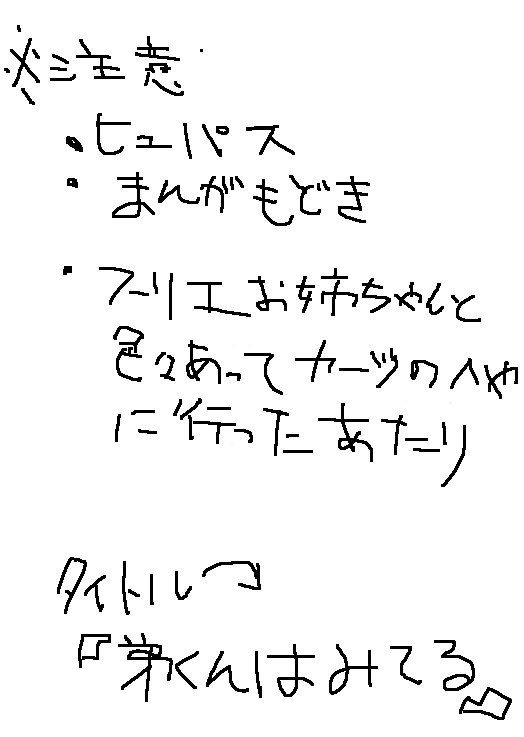 ※注意
・ヒューパス
・まんがもどき
・フーリエお姉ちゃんと
色々あってカーツのへや
に行ったあたり
タイトル→
『弟くんはみてる』